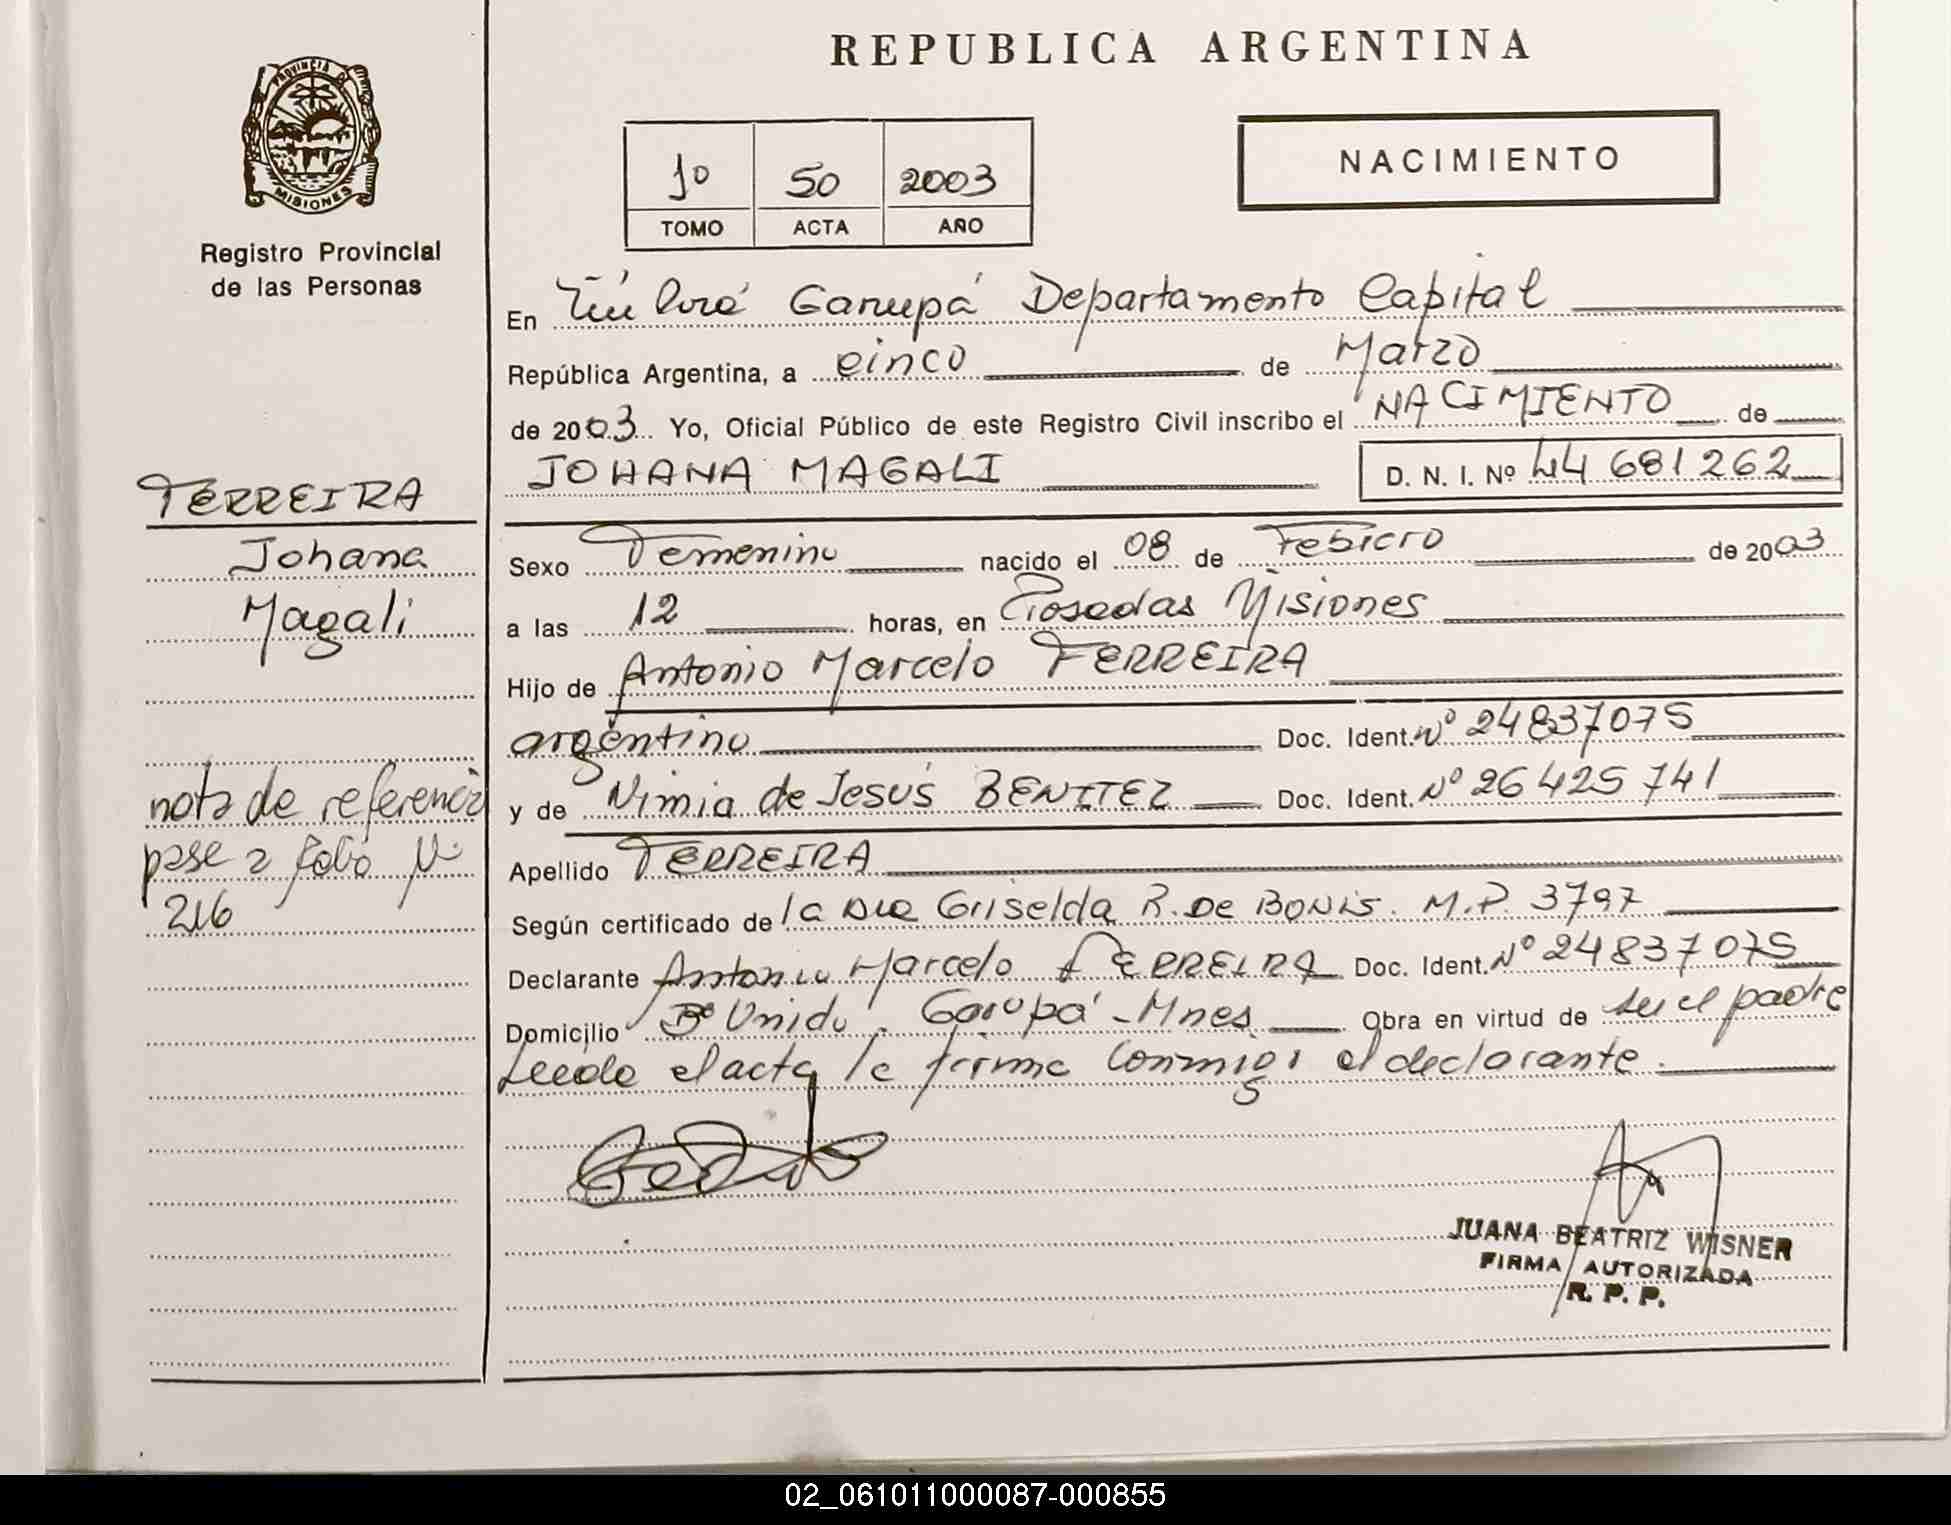 REPUBLICA ARGENTINA
PROVINCIA DE
MISIONES
Registro Provincial
de las Personas
1º 50 2003
TOMO ACTA AÑO
NACIMIENTO
En Garupá Departamento Capital
República Argentina, a cinco de Marzo
de 2003 Yo, Oficial Público de este Registro Civil inscribo el NACIMIENTO de
JOHANA MAGALI D. N. I. Nº 44 681262
FERREIRA
Johana
Magali
nota de referencia
pase a folio Nº
216
Sexo Femenino nacido el 08 de Febrero de 2003
a las 12 horas, en Posadas Misiones
Hijo de Antonio Marcelo FERREIRA
argentino Doc. Ident. Nº 24837075
y de Nimia de Jesús BENITEZ Doc. Ident. Nº 26425741
Apellido FERREIRA
Según certificado de la Dra Griselda R. De BONIS. M.P. 3797
Declarante Antonio Marcelo FERREIRA Doc. Ident. Nº 24837075
Domicilio Bº Unido. Garupá - Mnes Obra en virtud de ser el padre
Leeda el acta la firma conmigo el declarante.
JUANA BEATRIZ WISNER
FIRMA AUTORIZADA
R. P. P.
02_061011000087-000855